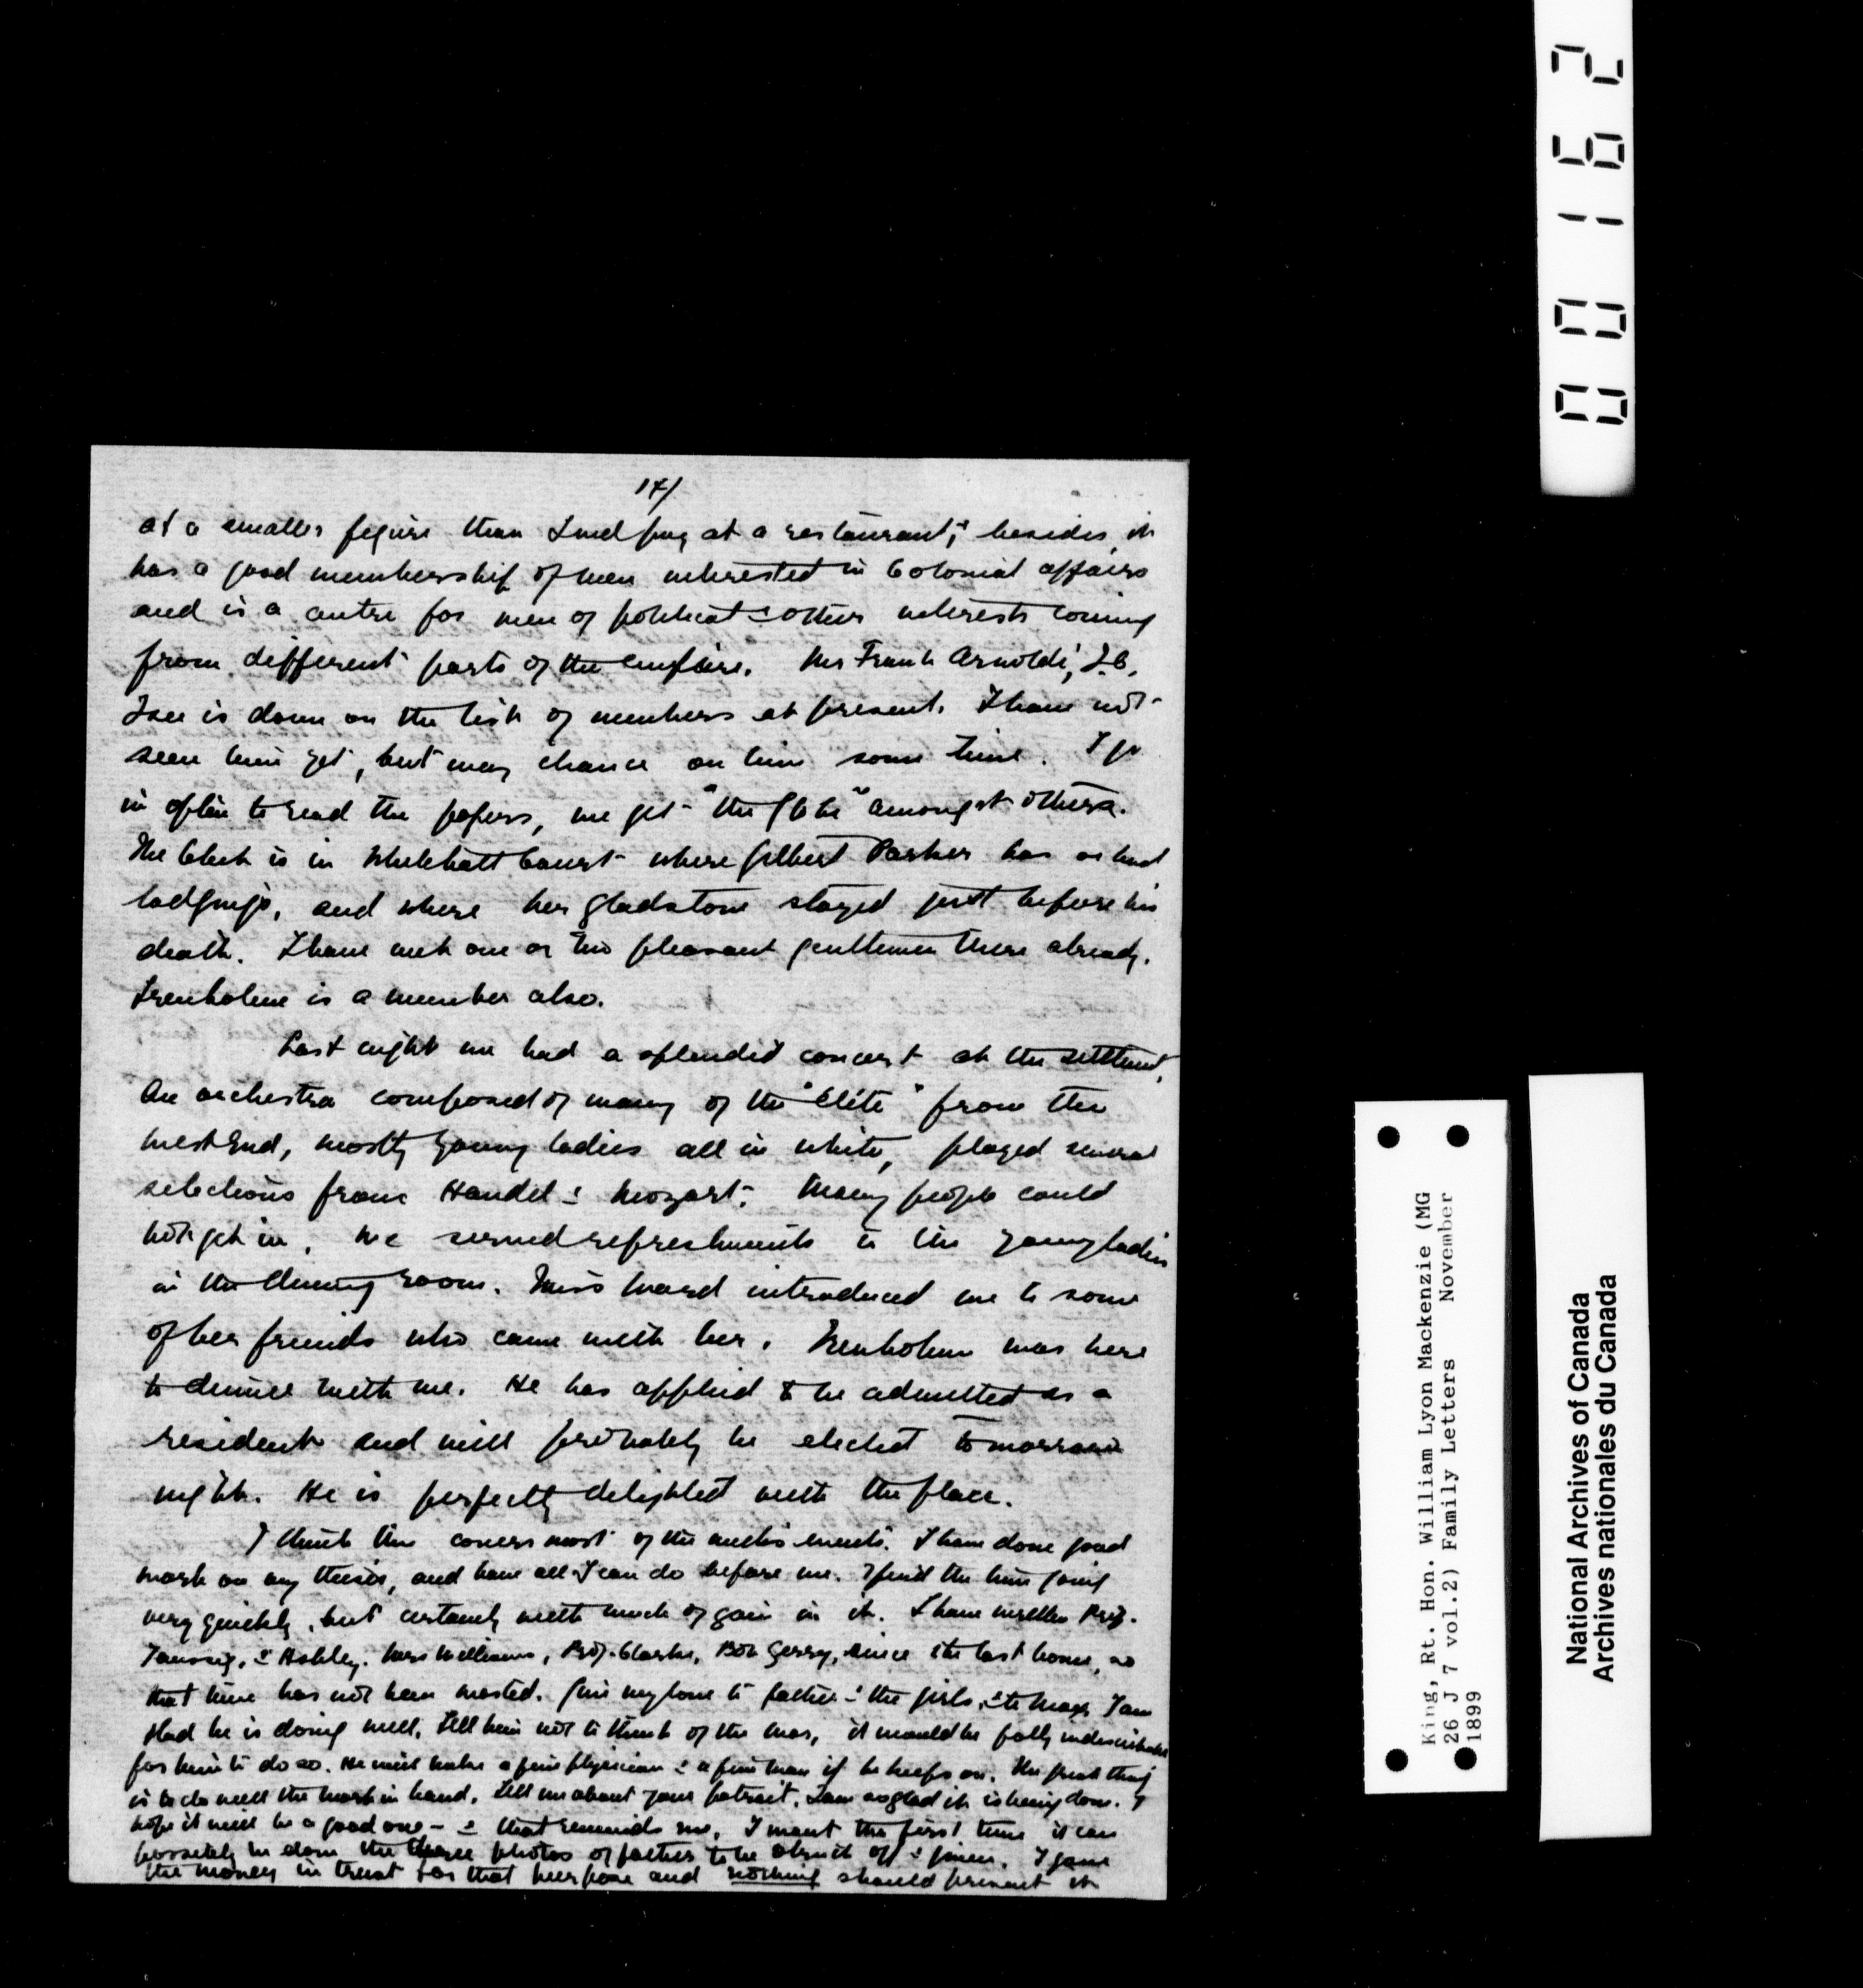 17/
at a smaller figure than I would pay at a restaurant, & besides, it
has a good membership of men interested in Colonial affairs
and is a centre for men of political & other interests coming
from different parts of the empire. Mr Frank Arnoldi, Q.C.
I see is down on the list of members at present. I have not
seen him yet, but may chance on him some time. I go
in often to read the papers, we get "the Globe" amongst others.
The Club is in Whitehall Court where Gilbert Parker has or had
lodgings, and where Mr Gladstone stayed just before his
death. I have met one or two pleasant gentlemen there already.
Trenholme is a member also.
Last night we had a splendid concert at the settlement,
An orchestra composed of many of the "Elite" from the
West End, mostly young ladies all in white, played several
selections from Handel & Mozart. Many people could
not get in. We served refreshments to the young ladies
in the dining room. Miss Ward introduced me to some
of her friends who came with her. Trenholme was here
to dinner with me. He has applied to be admitted as a
resident and will probably be elected tomorrow
night. He is perfectly delighted with the place.
I think this covers most of the week's events. I have done good
work on my thesis, and have all I can do before me. I find the time going
very quickly, but certainly with much of gain in it. I have written Prof.
Taussig, & Ashley. Mrs Williams, Prof. Clarke, Bob Gerry, since the last home, so
that time has not been wasted. Give my love to father & the girls, & to Max. I am
glad he is doing well. Tell him not to think of the war, it would be folly indescribable
for him to do so. He will make a fine physician & a fine man if he keeps on. The great thing
is to do well the work in hand. Tell me about your portrait. I am so glad it is being done. I
hope it will be a good one - & that reminds me, I want the first time it can
possibly be done the three photos of father to be struck off & given. I gave
the money in trust for that purpose and nothing should prevent it
00162
King, Rt. Hon. William Lyon Mackenzie (MG
26 J 7 vol.2) Family Letters November
1899
National Archives of Canada
Archives nationales du Canada